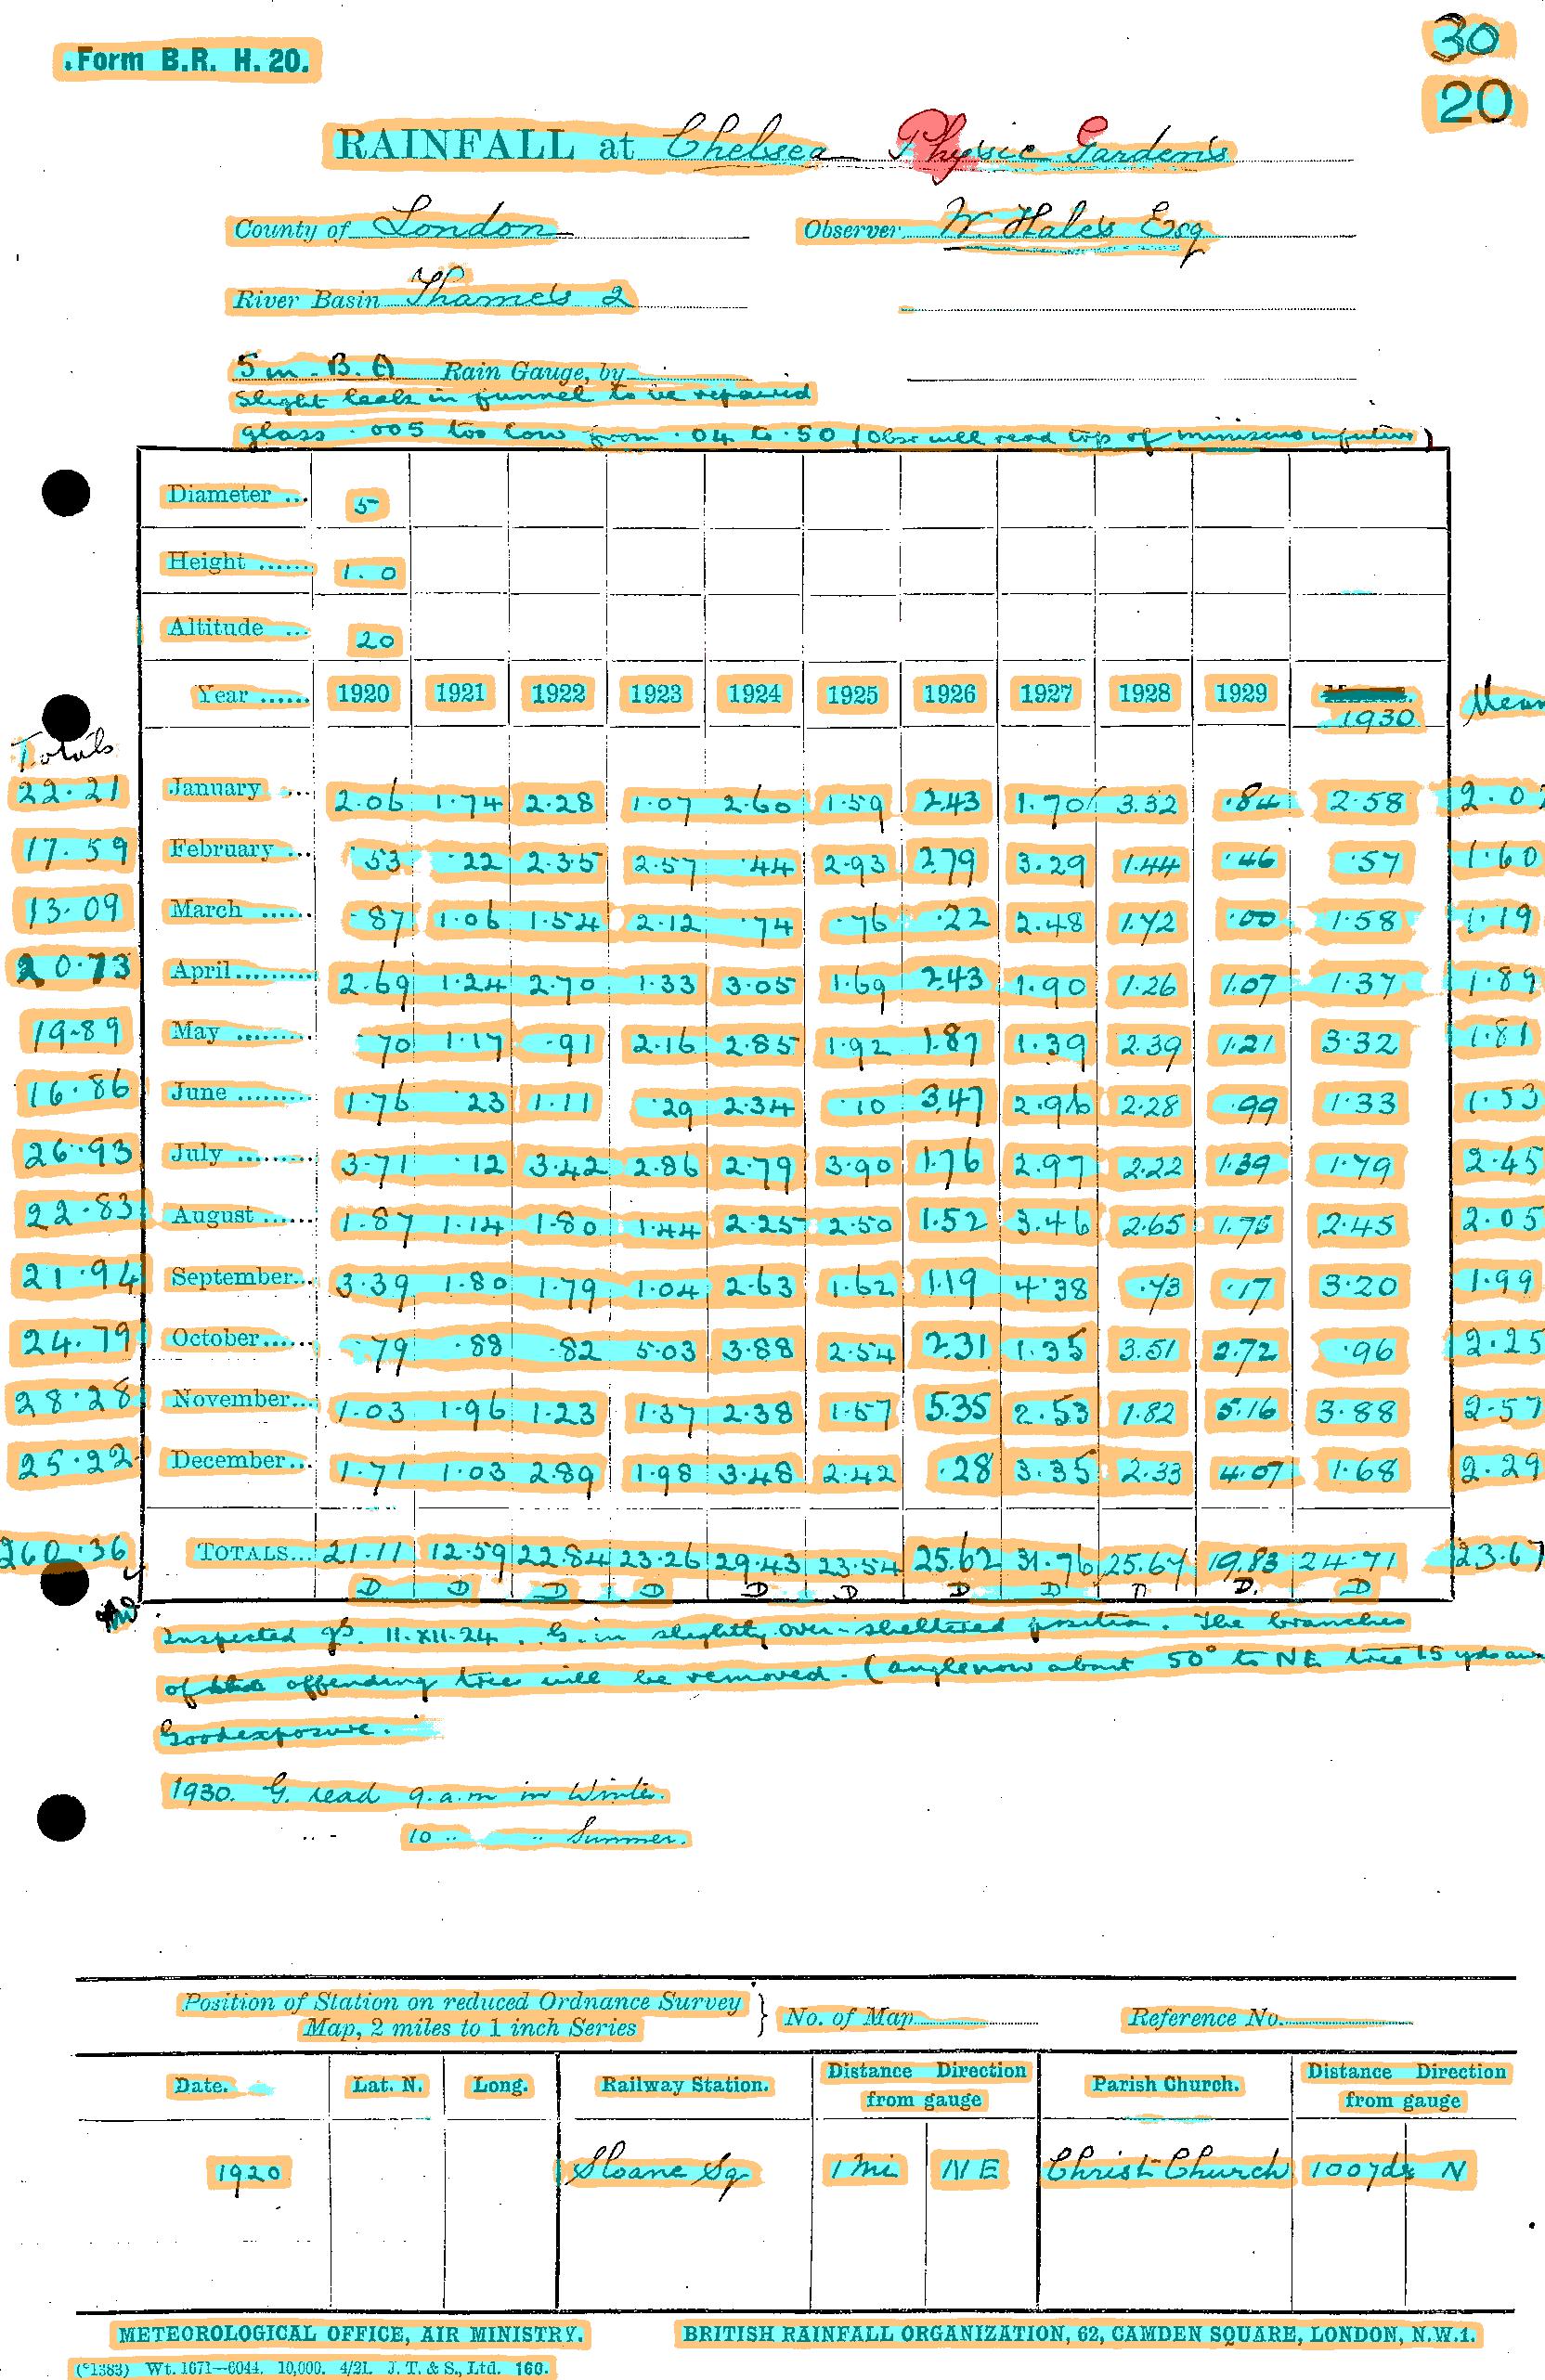 Form B.R. H. 20.
30
20
RAINFALL at Chelsea Physic Gardens
County of London Observer W Hales Esq
River Basin Thames 2
5 in. B. A Rain Gauge, by
Slight leak in funnel to be repaired
glass .005 too low from .04 to .50 (Obsr will read top of miniscus in future)
Diameter ... 5
Height ...... 1. 0
Altitude ... 20
Year ...... 1920 1921 1922 1923 1924 1925 1926 1927 1928 1929 1930 Mean
Totals
22.21 January ... 2.06 1.74 2.28 1.07 2.60 1.59 2.43 1.70 3.32 .84 2.58 2.0
17.59 February ... .53 .22 2.35 2.57 .44 2.93 2.79 3.29 1.44 .46 .57 1.60
13.09 March ...... .87 1.06 1.54 2.12 .74 .76 .22 2.48 1.72 .00 1.58 1.19
20.73 April......... 2.69 1.24 2.70 1.33 3.05 1.69 2.43 1.90 1.26 1.07 1.37 1.89
19.89 May ......... .70 1.17 .91 2.16 2.85 1.92 1.87 1.39 2.39 1.21 3.32 1.81
16.86 June ......... 1.76 .23 1.11 .29 2.34 .10 3.47 2.96 2.28 .99 1.33 1.53
26.93 July ......... 3.71 .12 3.42 2.86 2.79 3.90 1.76 2.97 2.22 1.39 1.79 2.45
22.83 August ...... 1.87 1.14 1.80 1.44 2.25 2.50 1.52 3.46 2.65 1.75 2.45 2.05
21.94 September... 3.39 1.80 1.79 1.04 2.63 1.62 1.19 4.38 .73 .17 3.20 1.99
24.79 October...... .79 .88 .82 5.03 3.88 2.54 2.31 1.35 3.51 2.72 .96 2.25
28.28 November... 1.03 1.96 1.23 1.37 2.38 1.57 5.35 2.53 1.82 5.16 3.88 2.57
25.22 December... 1.71 1.03 2.89 1.98 3.48 2.42 .28 3.35 2.33 4.07 1.68 2.29
260.36 TOTALS... 21.11 12.59 22.84 23.26 29.43 23.54 25.62 31.76 25.67 19.83 24.71 23.67
D D D D D D D D D D. D
Inspected 11.XII.24. G. in slightly over-sheltered position. The branches
of offending tree will be removed. (angle now about 50° to NE tree 15 yds
Good exposure.
1930. G. read 9. a.m in Winter.
.. - 10 .. .. Summer.
Position of Station on reduced Ordnance Survey
Map, 2 miles to 1 inch Series } No. of Map Reference No.
Date. Lat. N. Long. Railway Station. Distance Direction from gauge Parish Church. Distance Direction from gauge
1920 Sloane Sq 1 mi NE Christ Church 100 yds N
METEOROLOGICAL OFFICE, AIR MINISTRY. BRITISH RAINFALL ORGANIZATION, 62, CAMDEN SQUARE, LONDON, N.W.1.
(*1383) Wt. 1671—6044. 10,000. 4/21. J. T. & S., Ltd. 160.